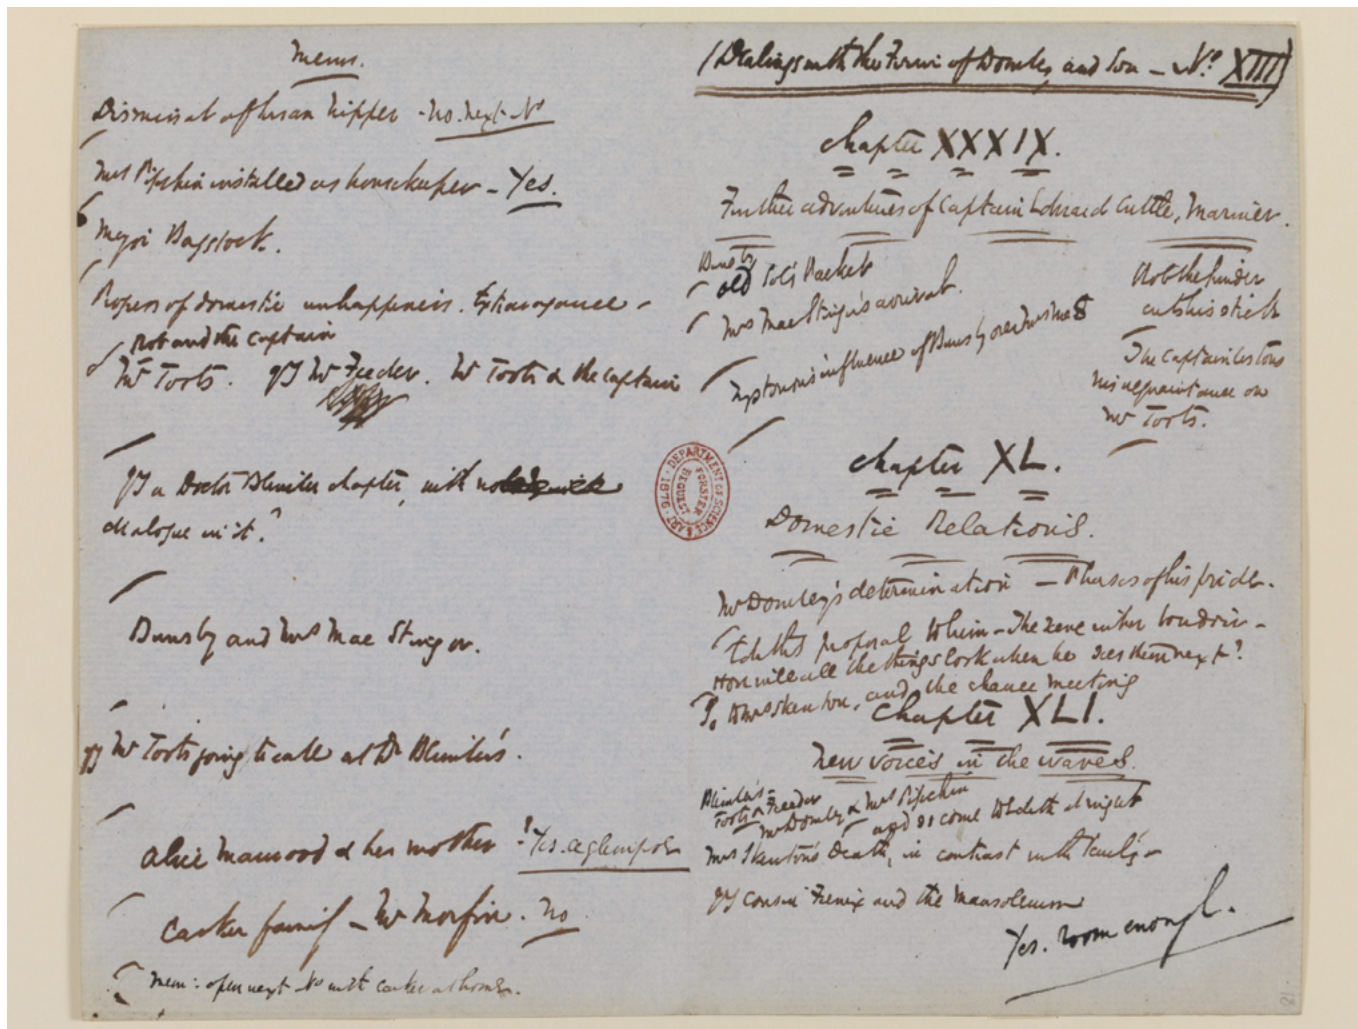 Mems.
Dismissal of Susan Nipper - No. next No
Mrs Pipchin installed as housekeeper - Yes.
Major Bagstock.
Progress of domestic unhappiness. Extravagance -
Rob and the Captain
Mr Toots. Qy Mr Feeder. Mr Toots & the Captain
Qy a Doctor Blimber chapter, with no
dialogue in it?
Bunsby and Mrs Mac Stinger.
Qy Mr Toots going to call at Dr Blimber's.
Alice Marwood & her mother ? Yes. a glimpse
Carker family - Mr Morfin. No
Mem: open next No with Carker at home.
(Dealings with the Firm of Dombey and Son - No. XIII)
Chapter XXXIX.
Further adventures of Captain Edward Cuttle, Mariner.
Bunsby
old Sol's Packet
Mrs Mac Stinger's arrival.
Mysterious influence of Bunsby over Mrs Mac S
Rob the Grinder
cuts his stick
The Captain bestows
his acquaintance on
Mr Toots.
Chapter XL.
Domestic Relations.
Mr Dombey's determination - Phases of his pride.
Edith's proposal to him - The scene in her boudoir -
How will all the things look when he sees them next?
To Mrs Skewton, and the chance meeting
Chapter XLI.
New voices in the waves.
Blimber's -
Toots & Feeder
Mr Dombey & Mrs Pipchin
and so come to Edith at night
Mrs Skewton's Death, in contrast with Paul's -
Qy Cousin Feenix and the Mausoleum
Yes. room enough.
DEPARTMENT OF SCIENCE & ART. 1876.
FORSTER
BEQUEST
21.